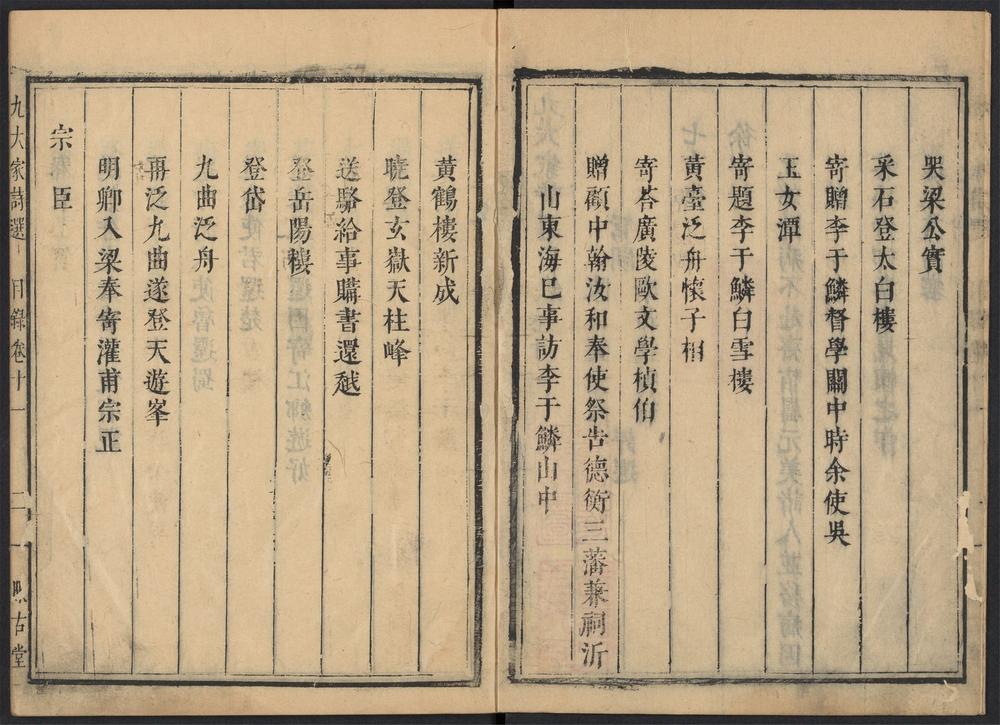 哭梁公實
采石登太白樓
寄贈李于鱗督學關中時余使吳
玉女潭
寄題李于鱗白雪樓
黃臺泛舟懷子相
寄荅廣陵歐文學楨伯
贈顧中翰汝和奉使祭告德衡三藩兼祠沂
山東海巳事訪李于鱗山中
黃鶴樓新成
曉登玄嶽天柱峰
送駱給事購書還越
登岳陽樓
登岱
九曲泛舟
再泛九曲遂登天遊峯
明卿入梁奉寄灌甫宗正
宗臣
九大家詩選 目錄卷十一 二 古堂